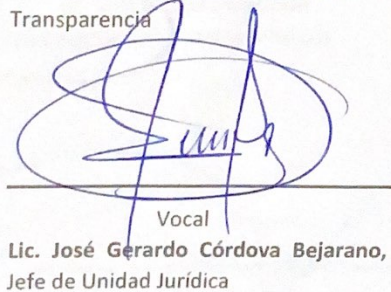 Transparencia
Vocal
Lic. José Gerardo Córdova Bejarano,
Jefe de Unidad Jurídica